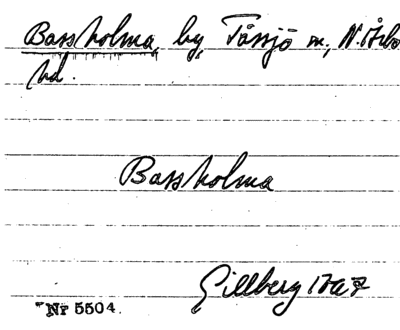 Bassholma, by, Tåssjö sn, N. Åsbo
hd.
Bassholma
Gillberg
Nr 5504.